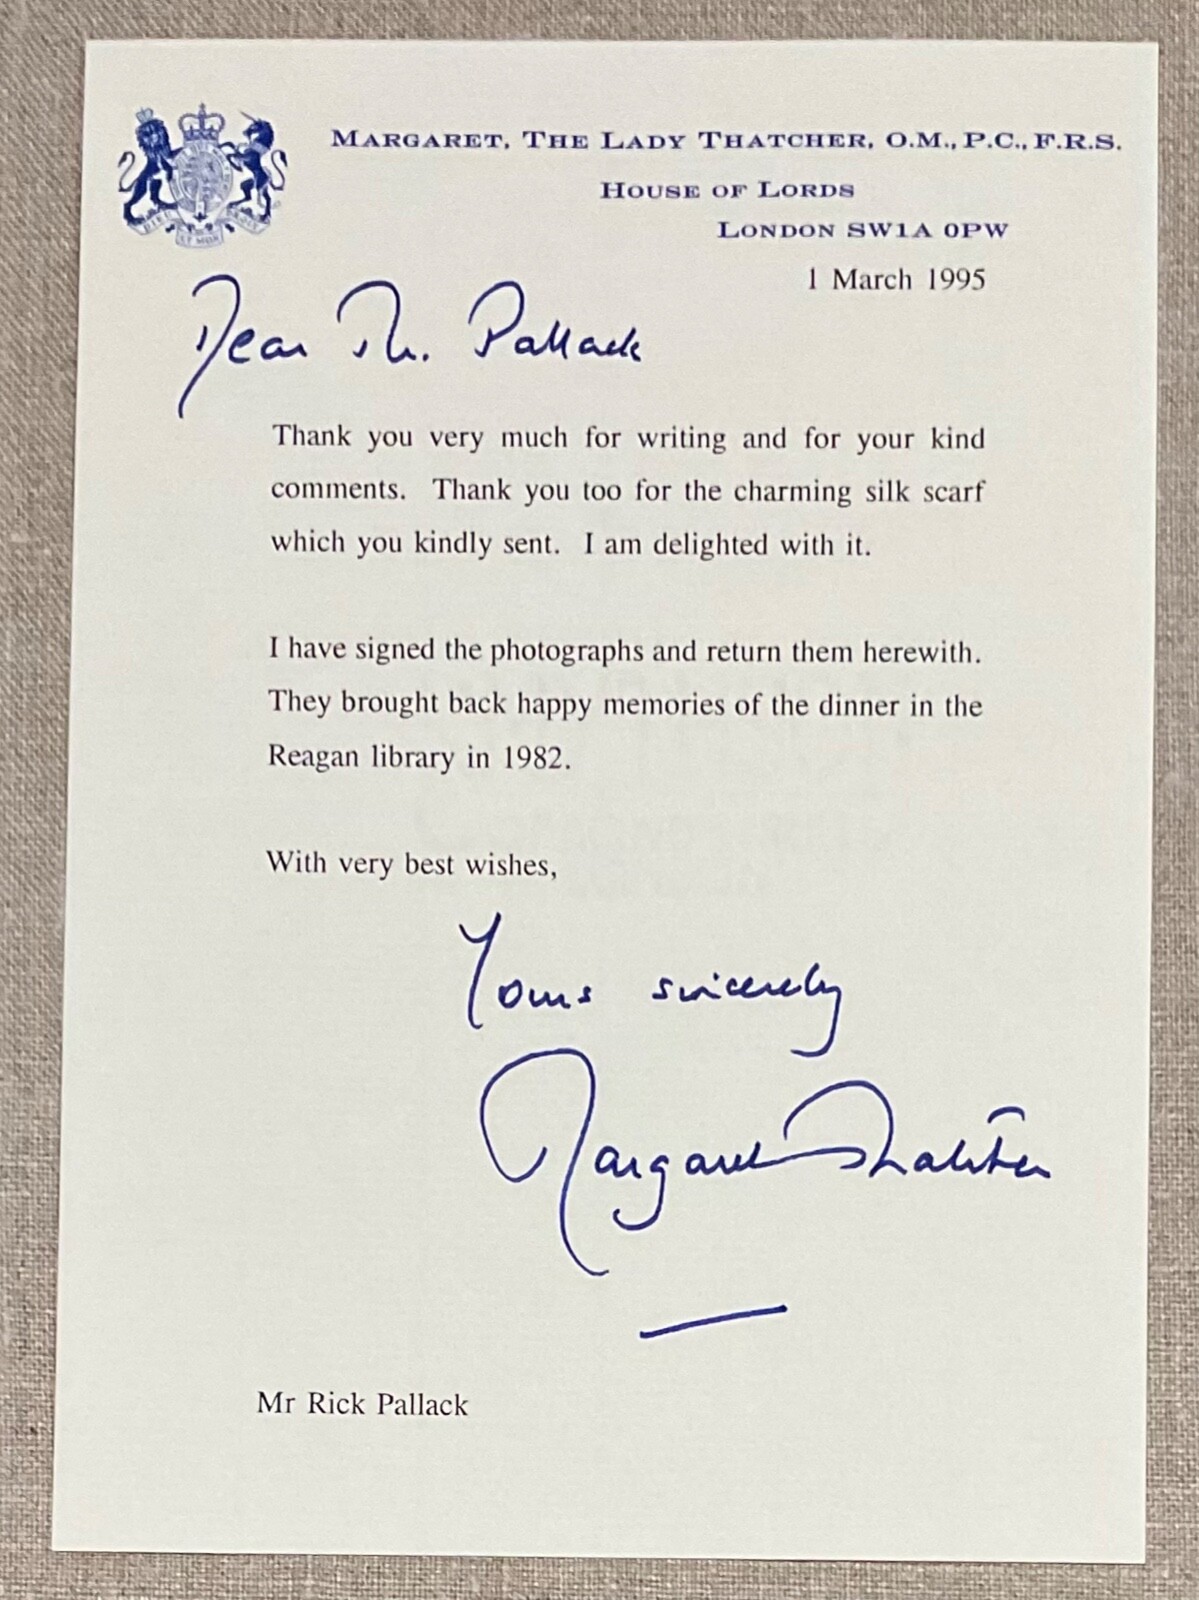 MARGARET, THE LADY THATCHER, O.M., P.C., F.R.S.
HOUSE OF LORDS
LONDON SW1A 0PW
1 March 1995
Dear Mr. Pallack
Thank you very much for writing and for your kind
comments. Thank you too for the charming silk scarf
which you kindly sent. I am delighted with it.
I have signed the photographs and return them herewith.
They brought back happy memories of the dinner in the
Reagan library in 1982.
With very best wishes,
Yours sincerely
Margaret Thatcher
Mr Rick Pallack